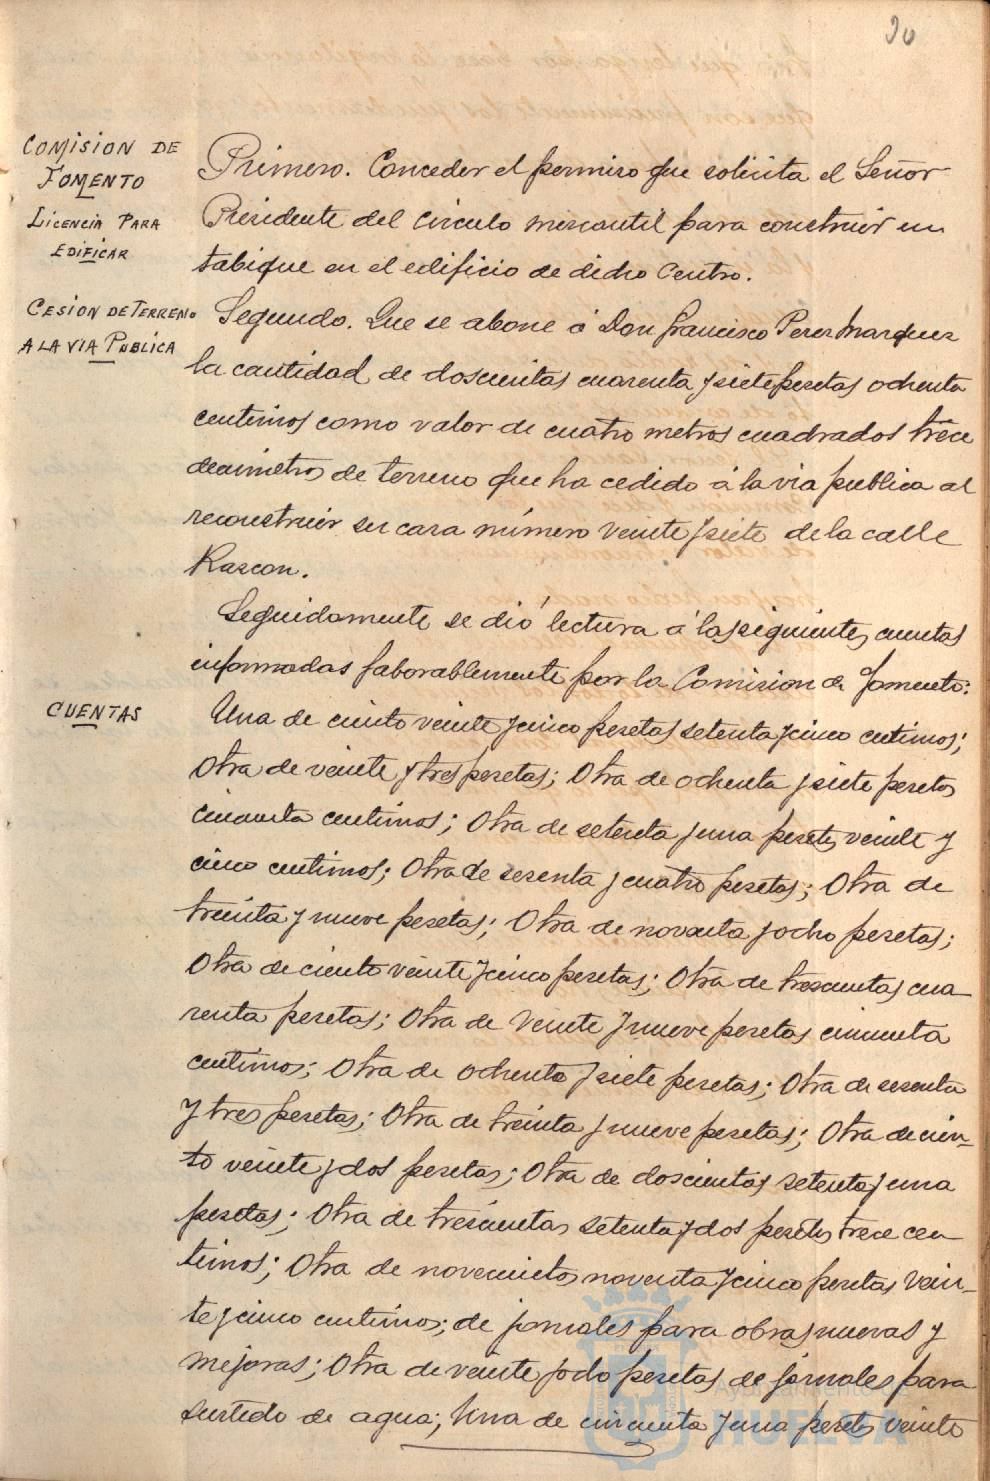 20
COMISION DE
FOMENTO
LICENCIA PARA
EDIFICAR
Primero. Conceder el permiso que solicita el Señor
Presidente del Circulo mercantil para construir un
tabique en el edificio de dicho Centro.
CESION DE TERRENO
A LA VIA PUBLICA
Segundo. Que se abone á Don Francisco Perez Marquez
la cantidad de doscientas cuarenta y siete pesetas ochenta
centimos como valor de cuatro metros cuadrados trece
decimetros de terreno que ha cedido á la via publica al
reconstruir su casa número veinte y siete de la calle
Rascon.
Seguidamente se dió lectura á las siguientes cuentas
informadas faborablemente por la Comision de Fomento:
CUENTAS
Una de ciento veinte y cinco pesetas setenta y cinco centimos;
Otra de veinte y tres pesetas; Otra de ochenta y siete pesetas
cincuenta centimos; Otra de setenta y una pesetas veinte y
cinco centimos; Otra de sesenta y cuatro pesetas; Otra de
treinta y nueve pesetas; Otra de noventa y ocho pesetas;
Otra de ciento veinte y cinco pesetas; Otra de trescientas cua
renta pesetas; Otra de veinte y nueve pesetas cincuenta
centimos; Otra de ochenta y siete pesetas; Otra de sesenta
y tres pesetas; Otra de treinta y nueve pesetas; Otra de cien-
to veinte y dos pesetas; Otra de doscientas setenta y una
pesetas; Otra de trescientas setenta y dos pesetas trece cen
timos; Otra de novecientas noventa y cinco pesetas vein-
te y cinco centimos; de jornales para obras nuevas y
mejoras; Otra de veinte y ocho pesetas de jornales para
surtido de agua; Una de cincuenta y una pesetas veinte
Ayuntamiento de
HUELVA